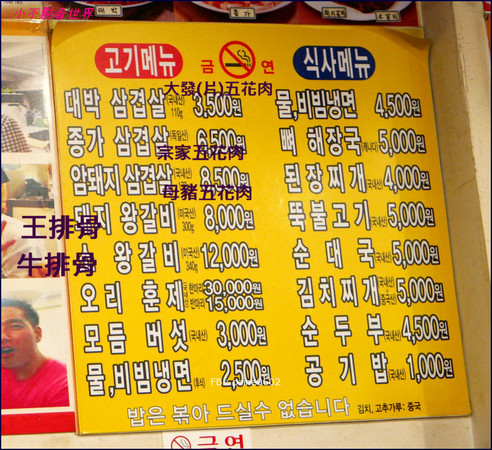 小不點看世界
대박
종가
고기메뉴 금 연 식사메뉴
大發(片)五花肉
대박 삼겹살 (국내산) 110g 3,500원
종가 삼겹살 (독일산) 6,500원
宗家五花肉
암돼지 삼겹살 (국내산) 8,500원
母豬五花肉
돼지 왕갈비 (미국산) 300g 8,000원
王排骨
왕갈비 (미국산) 340g 12,000원
牛排骨
오리 훈제 한마리 30,000원
반마리 15,000원
모듬 버섯 (국내산) 3,000원
물,비빔냉면 (후식) 2,500원
물,비빔냉면 4,500원
뼈 해장국 (캐나다) 5,000원
된장찌개 (국내산) 4,000원
뚝불고기 (국내산) 5,000원
순대국 (국내산) 5,000원
김치찌개 (국내산) (중국산) 5,000원
순두부 (국내산) 4,500원
공기밥 (국내산) 1,000원
밥은 볶아 드실수 없습니다 김치, 고추가루: 중국
금연